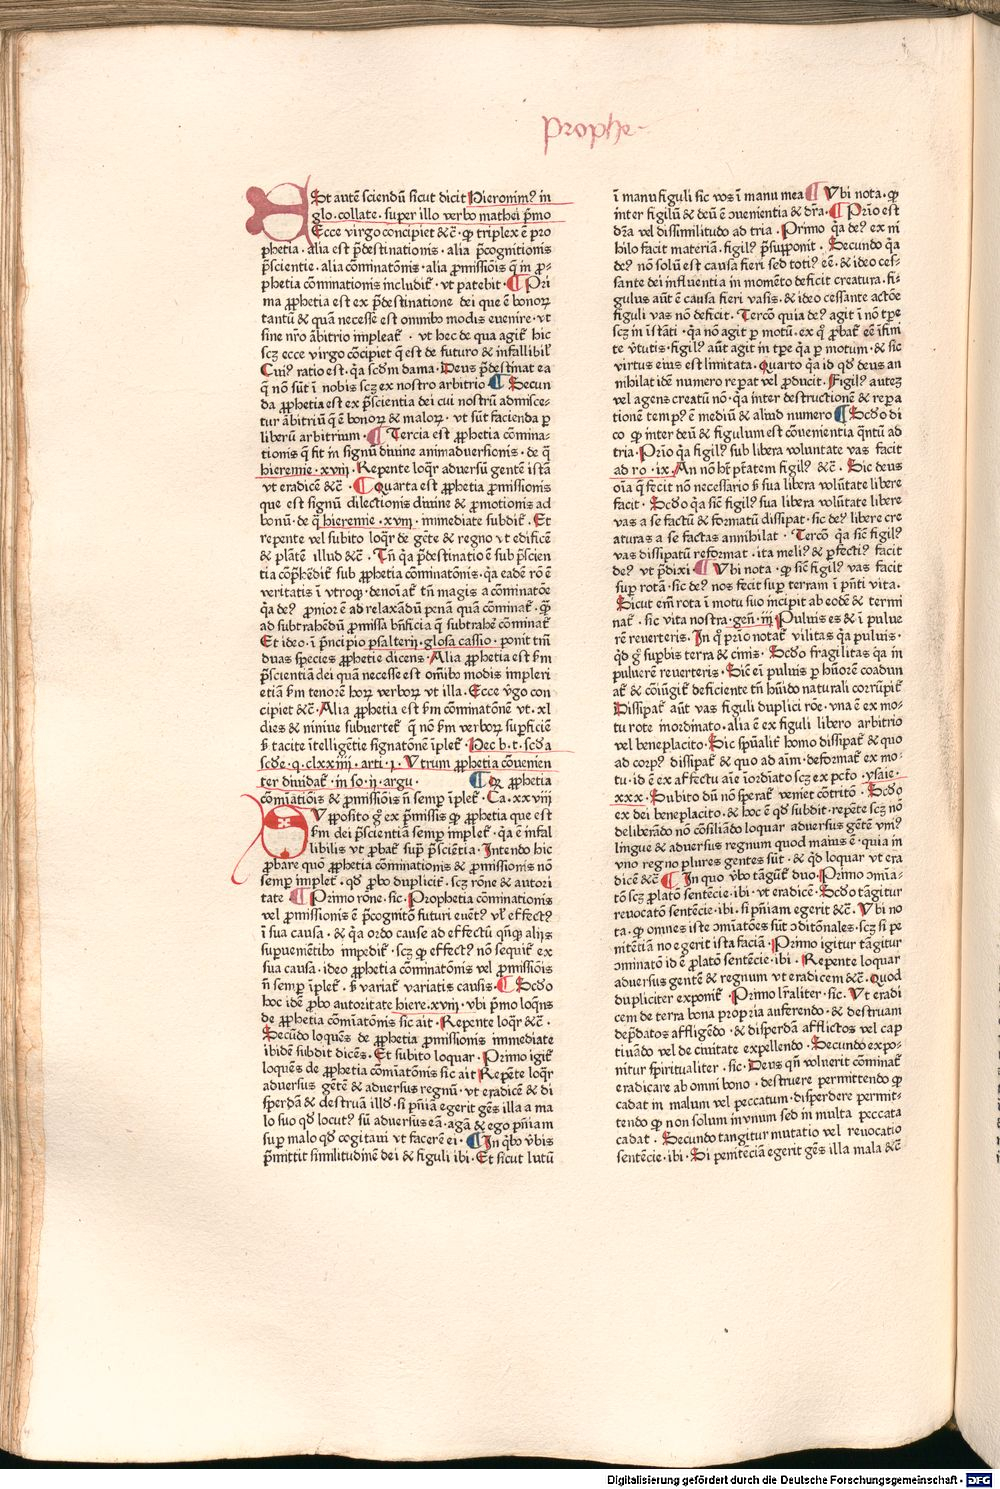 prophe-
Est autē sciendū sicut dicit Hieronimꝰ in
glo. collate. super illo verbo mathei p̄mo
Ecce virgo concipiet &c̄ · ꝙ triplex ē pro
phetia · alia est p̄destinationis · alia p̄cognitionis
p̄scientie · alia cōminatōnis · alia ꝓmissiōis q̄ in ꝓ-
phetia cōminationis includit᷑ · vt patebit · Pri
ma ꝓphetia est ex p̄destinatione dei que ē bonoꝝ
tantū & quā necesse est omnibꝰ modis euenire · vt
sine nr̄o ābitrio impleat᷑ · vt hec de qua agit᷑ hic
scꝫ ecce virgo cōcipiet q̄ est de futuro & infallibil᷑
Cuiꝰ ratio est · q̇a scd̄m dama · Deus p̄destinat ea
q̄ nō sūt ī nobis scꝫ ex nostro arbitrio Secun
da ꝓphetia est ex p̄scientia dei cui nostrū admisce-
tur ābitriū q̄ ē bonoꝝ & maloꝝ · vt sūt facienda ꝑ
liberū arbitrium · Tercia est ꝓphetia cōmina-
tionis q̄ fit in signū diuine animaduersionis · de q̄
hieremie · xviij · Repente loqr̄ aduersū gentē istā
vt eradicē &c̄ · Quarta est ꝓphetia ꝓmissionis
que est signū dilectionis diuine & ꝓmotionis ad
bonū · de q̄ hieremie · xviij · immediate subdit᷑ · Et
repente vel subito loqr̄ de gēte & regno vt edificē
& plātē illud &c̄ · Tn̄ q̇a p̄destinatio ē sub p̄scien
tia cōp̄hēdit᷑ sub ꝓphetia cōminatōnis · q̇a eadē rō ē
veritatis ī vtroqꝫ · denoīat᷑ tn̄ magis a cōminatōe
q̇a deꝰ ꝓnior ē ad relaxādū penā quā cōminat᷑ · ꝙ̄
ad subtrahēdū ꝓmissa bn̄ficia q̄ subtrahē cōminat᷑
Et ideo · ī p̄ncipio psalterij · glosa cassio · ponit tm̄
duas species ꝓphetie dicens · Alia ꝓphetia est ẜm
p̄scientiā dei quā necesse est om̄ibꝰ modis impleri
etiā ẜm tenorē hoꝝ verboꝝ vt illa · Ecce v̇go con
cipiet &c̄ · Alia ꝓphetia est ẜm cōminatōnē vt · xl
dies & niniue subuertet᷑ q̄ nō ẜm verboꝝ suꝑficiē
ẜ tacite ītelligētie signatōnē īplet᷑ · Hec b · t · scd̄a
scd̄e · q · clxxiiij · arti · j · Vtrum ꝓphetia cōuenien
ter diuidat᷑ · in so · ij · argu · Qꝫ ꝓphetia
comīatiōis & ꝓmissiōis n̄ semꝑ īplet᷑ · Ca · xxviij
Supposito gͦ ex p̄missis ꝙ ꝓphetia que est
ẜm dei p̄scientiā semꝑ implet᷑ · q̇a ē infal
libilis vt ꝓbat᷑ sup̄ p̄scientia · Intendo hic
ꝓbare quō ꝓphetia cōminationis & ꝓmissionis nō
semꝑ implet᷑ · qd̄ ꝓbo duplicit᷑ · scꝫ rōne & autori
tate Primo rōne · sic · Prophetia cominationis
vel ꝓmissionis ē p̄cognitō futuri euētꝰ vl᷑ effectꝰ
ī sua causa · & q̇a ordo cause ad effectū qn̄qꝫ alijs
supuemētibꝰ impedit᷑ · scꝫ ꝙ effectꝰ nō sequit᷑ ex
sua causa · ideo ꝓphetia cōminatōnis vel ꝓmissiōis
n̄ semꝑ īplet᷑ · ẜ variat᷑ variatis causis · Scd̄o
hoc idē ꝓbo autoritate hiere · xviij · vbi p̄mo loqn̄s
de ꝓphetia cōmīatōnis sic ait · Repente loqr̄ &c̄ ·
Secūdo loquēs de ꝓphetia ꝓmissionis immediate
ibidē subdit dicēs · Et subito loquar · Primo igit᷑
loquēs de ꝓphetia cōmīatōnis sic ait Repēte loqr̄
aduersus gētē & aduersus regnū · vt eradicē & di
sperdā & destruā illd̄ · si pn̄iam egerit gēs illa a ma
lo suo qd̄ locutꝰ sū aduersus eā · agā & ego pn̄iam
suꝑ malo qd̄ cogitaui vt facerē ei · In qͥbꝰ v̇bis
p̄mittit similitudinē dei & figuli ibi · Et sicut lutū
ī manu figuli sic vos ī manu mea Vbi nota · ꝙ
inter figilū & deū ē ↄuenientia & dr̄a · Pri̇o est
dr̄a vel dissimilitudo ad tria · Primo q̇a deꝰ ex ni
hilo facit materiā · figilꝰ p̄supponit · Secundo q̇a
deꝰ nō solū est causa fieri sed totiꝰ eē · & ideo ces-
sante dei influentia in momēto deficit creatura · fi-
gulus aūt ē causa fieri vasis · & ideo cessante actōe
figuli vas nō deficit · Tercō quia deꝰ agit ī nō tꝑe
scꝫ in īstāti · q̇a nō agit ꝑ motū · ex qͦ ꝓbat᷑ eē īfini
te v̇tutis · figilꝰ aūt agit in tꝑe q̇a ꝑ motum · & sic
virtus eius est limitata · Quarto q̇a id qd̄ deus an
nihilat idē numero reꝑat vel ꝓducit · Figilꝰ autez
vel agens creatū nō · q̇a inter destructionē & reꝑa
tionē tempꝰ ē mediū & aliud numero Scd̄o di
co ꝙ inter deū & figulum est cōuenientia qͣntū ad
tria · Pri̇o q̇a figilꝰ sub libera voluntate vas facit
ad ro · ix · An nō hꝫ p̄tatem figilꝰ &c̄ · Sic deus
oīa q̄ fecit nō necessario ẜ sua libera volūtate libere
facit · Scd̄o q̇a siē figilꝰ sua libera volūtate libere
vas a se factū & formatū dissipat · sic deꝰ libere cre
aturas a se factas annihilat · Tercō q̇a siē figilꝰ
vas dissipatū reformat · ita meliꝰ & ꝑfectiꝰ facit
deꝰ vt p̄dixi Vbi nota · ꝙ siē figilꝰ vas facit
suꝑ rotā · sic deꝰ nos fecit suꝑ terram ī pn̄ti vita ·
Sicut em̄ rota ī motu suo incipit ab eodē & termi
nat᷑ · sic vita nostra · gen̄ · iij Puluis es & ī pulue
rē reuerteris · In qͦ pri̇o notat᷑ vilitas q̇a puluis ·
qd̄ gͦ suꝑbis terra & cinis · Scd̄o fragilitas q̇a in
puluerē reuerteris · Siē ei̇ puluis ꝑ hu̇orē coadun
at᷑ & cōiūgit᷑ deficiente tn̄ hu̇ido naturali corrūpit᷑
Dissipat᷑ aūt vas figuli duplici rōe · vna ē ex mo-
tu rote inordinato · alia ē ex figuli libero arbitrio
vel beneplacito · Sic sp̄ualit᷑ homo dissipat᷑ & quo
ad corpꝰ dissipat᷑ & quo ad aīm · deformat᷑ ex mo-
tu · id ē ex affectu aīe īordiato scꝫ ex pctō · ysaie ·
xxx · Subito dū nō sperat᷑ veniet cōtritō · Scd̄o
ex dei beneplacito · & hoc ē qd̄ subdit · repēte scꝫ nō
deliberādo nō cōsiliādo loquar aduersus gētē vniꝰ
lingue & aduersus regnum quod maius ē · quia in
vno regno plures gentes sūt · & qd̄ loquar vt era
dicē &c̄ In quo v̇bo tāgūt᷑ duo · Primo ↄmīa-
tō scꝫ platō sentēcie · ibi · vt eradicē · Scd̄o tāgitur
reuocatō sentēcie · ibi · si pn̄iam egerit &c̄ · Vbi no
ta · ꝙ omnes iste ↄmīatōes sūt ↄditōnales · scꝫ si pe
nitētiā no egerit ista faciā · Primo igitur tāgitur
ↄminatō id ē ꝓlatō sentēcie · ibi · Repente loquar
aduersus gentē & regnum vt eradicem &c̄ · Quod
dupliciter exponit᷑ · Primo lr̄aliter · sic · Vt eradi
cem de terra bona propria auferendo · & destruam
dep̄datos affligēdo · & disperdā afflictos vel cap
tiuādo vel de ciuitate expellendo · Secundo expo-
nitur spiritualiter · sic · Deus qn̄ voluerit cōminat᷑
eradicare ab omni bono · destruere permittendo ꝙ
cadat in malum vel peccatum · disperdere permit-
tendo ꝙ non solum in vnum sed in multa peccata
cadat · Secundo tangitur mutatio vel reuocatio
sentēcie · ibi · Si peniteciā egerit gēs illa mala &c̄
Digitalisierung gefördert durch die Deutsche Forschungsgemeinschaft · DFG